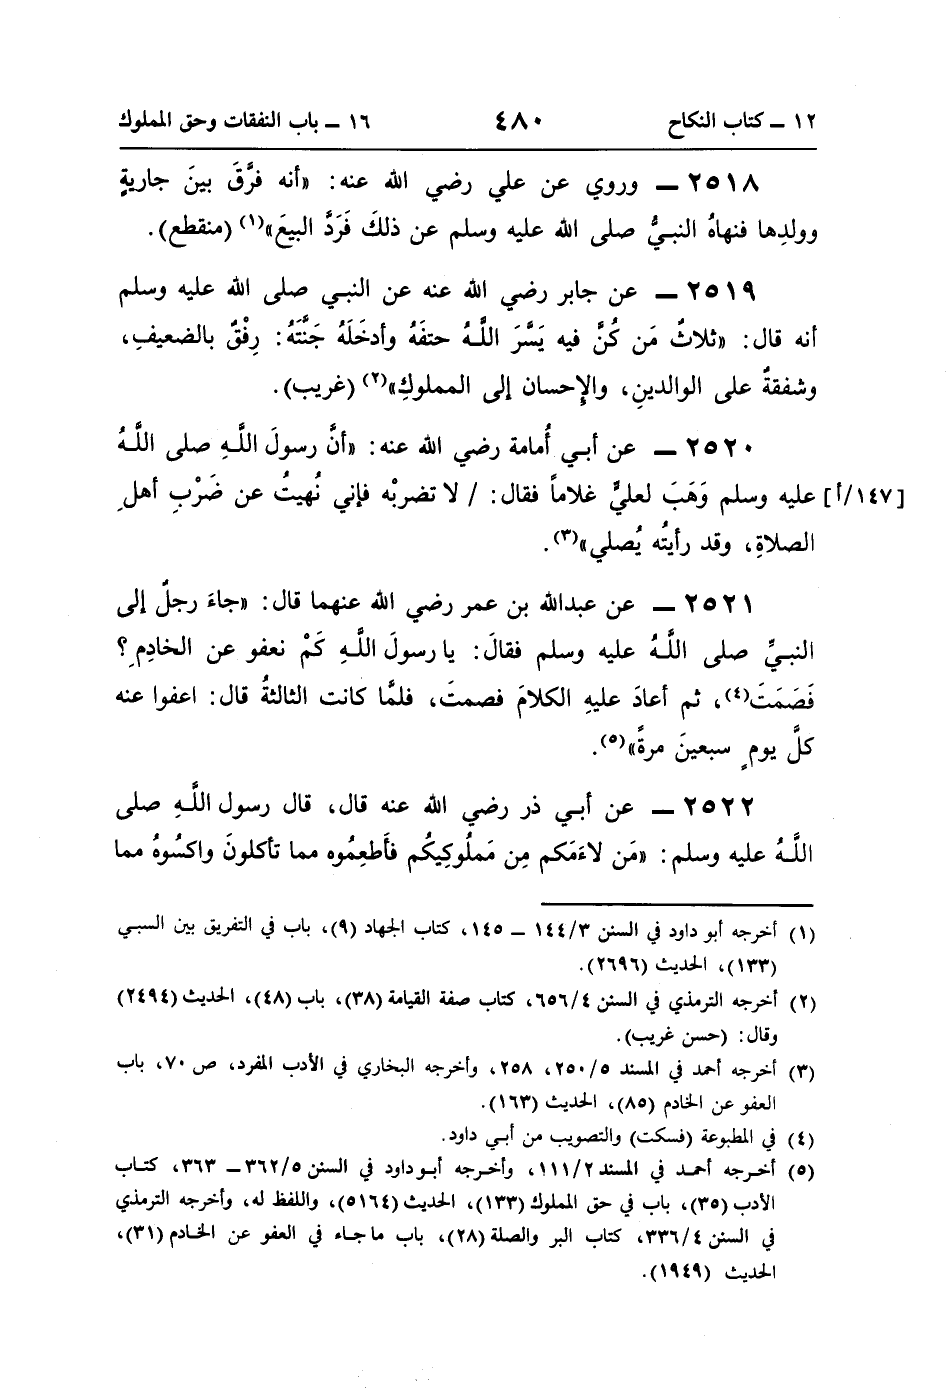 ١٢ ــ كتاب النكاح ٤٨٠ ١٦ ــ باب النفقات وحق المملوك
٢٥١٨ ــ وروي عن علي رضي الله عنه: «أنه فرَّقَ بينَ جاريةٍ
وولدِها فنهاهُ النبيُّ صلى الله عليه وسلم عن ذلكَ فَرَدَّ البيعَ»(١) (منقطع).
٢٥١٩ ــ عن جابر رضي الله عنه عن النبي صلى الله عليه وسلم
أنه قال: «ثلاثٌ مَن كُنَّ فيه يَسَّرَ اللَّهُ حتفَهُ وأدخَلَهُ جَنَّتَهُ: رِفْقٌ بالضعيفِ،
وشفقةٌ على الوالدينِ، والإِحسان إلى المملوكِ»(٢) (غريب).
٢٥٢٠ ــ عن أبي أُمامة رضي الله عنه: «أنَّ رسولَ اللَّهِ صلى اللَّهُ
عليه وسلم وَهَبَ لعليٍّ غلاماً فقال: / لا تضربْه فإني نُهيتُ عن ضَرْبِ أهلِ [١٤٧/أ]
الصلاةِ، وقد رأيتُه يُصلي»(٣).
٢٥٢١ ــ عن عبدالله بن عمر رضي الله عنهما قال: «جاءَ رجلٌ إلى
النبيِّ صلى اللَّهُ عليه وسلم فقالَ: يا رسولَ اللَّهِ كَمْ نعفو عن الخادِمِ؟
فَصَمَتَ(٤)، ثم أعادَ عليهِ الكلامَ فصمتَ، فلمَّا كانت الثالثةُ قال: اعفوا عنه
كلَّ يومٍ سبعينَ مرةً»(٥).
٢٥٢٢ ــ عن أبي ذر رضي الله عنه قال، قال رسول اللَّهِ صلى
اللَّهُ عليه وسلم: «مَن لاءَمَكم مِن مَملُوكِيكُم فأَطعِمُوه مما تأكلونَ واكسُوهُ مما
(١) أخرجه أبو داود في السنن ١٤٤/٣ ــ ١٤٥، كتاب الجهاد (٩)، باب في التفريق بين السبي
(١٣٣)، الحديث (٢٦٩٦).
(٢) أخرجه الترمذي في السنن ٦٥٦/٤، كتاب صفة القيامة (٣٨)، باب (٤٨)، الحديث (٢٤٩٤)
وقال: (حسن غريب).
(٣) أخرجه أحمد في المسند ٢٥٠/٥، ٢٥٨، وأخرجه البخاري في الأدب المفرد، ص ٧٠، باب
العفو عن الخادم (٨٥)، الحديث (١٦٣).
(٤) في المطبوعة (فسكت) والتصويب من أبي داود.
(٥) أخرجه أحمد في المسند ١١١/٢، وأخرجه أبو داود في السنن ٣٦٢/٥ ــ ٣٦٣، كتاب
الأدب (٣٥)، باب في حق المملوك (١٣٣)، الحديث (٥١٦٤)، واللفظ له، وأخرجه الترمذي
في السنن ٣٣٦/٤، كتاب البر والصلة (٢٨)، باب ما جاء في العفو عن الخادم (٣١)،
الحديث (١٩٤٩).